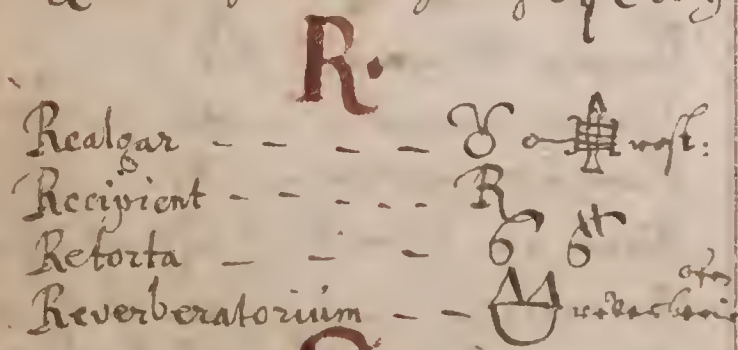 R.
Realgar - - - - ♉
Recipient - - - - - R
Retorta - - -
Reverberatorium - -